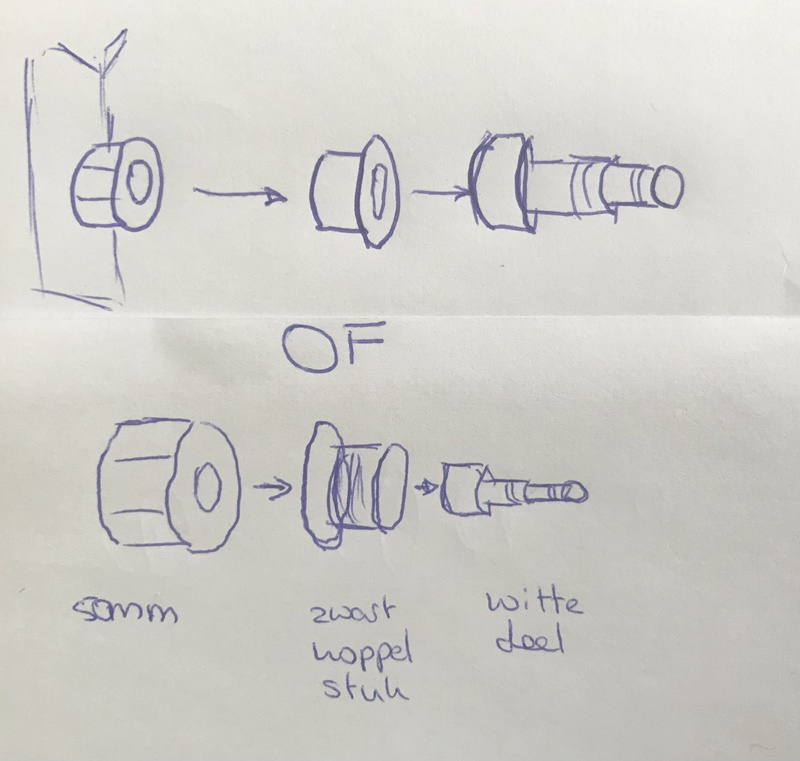 OF
50mm
zwart
witte
koppel
deel
stuk